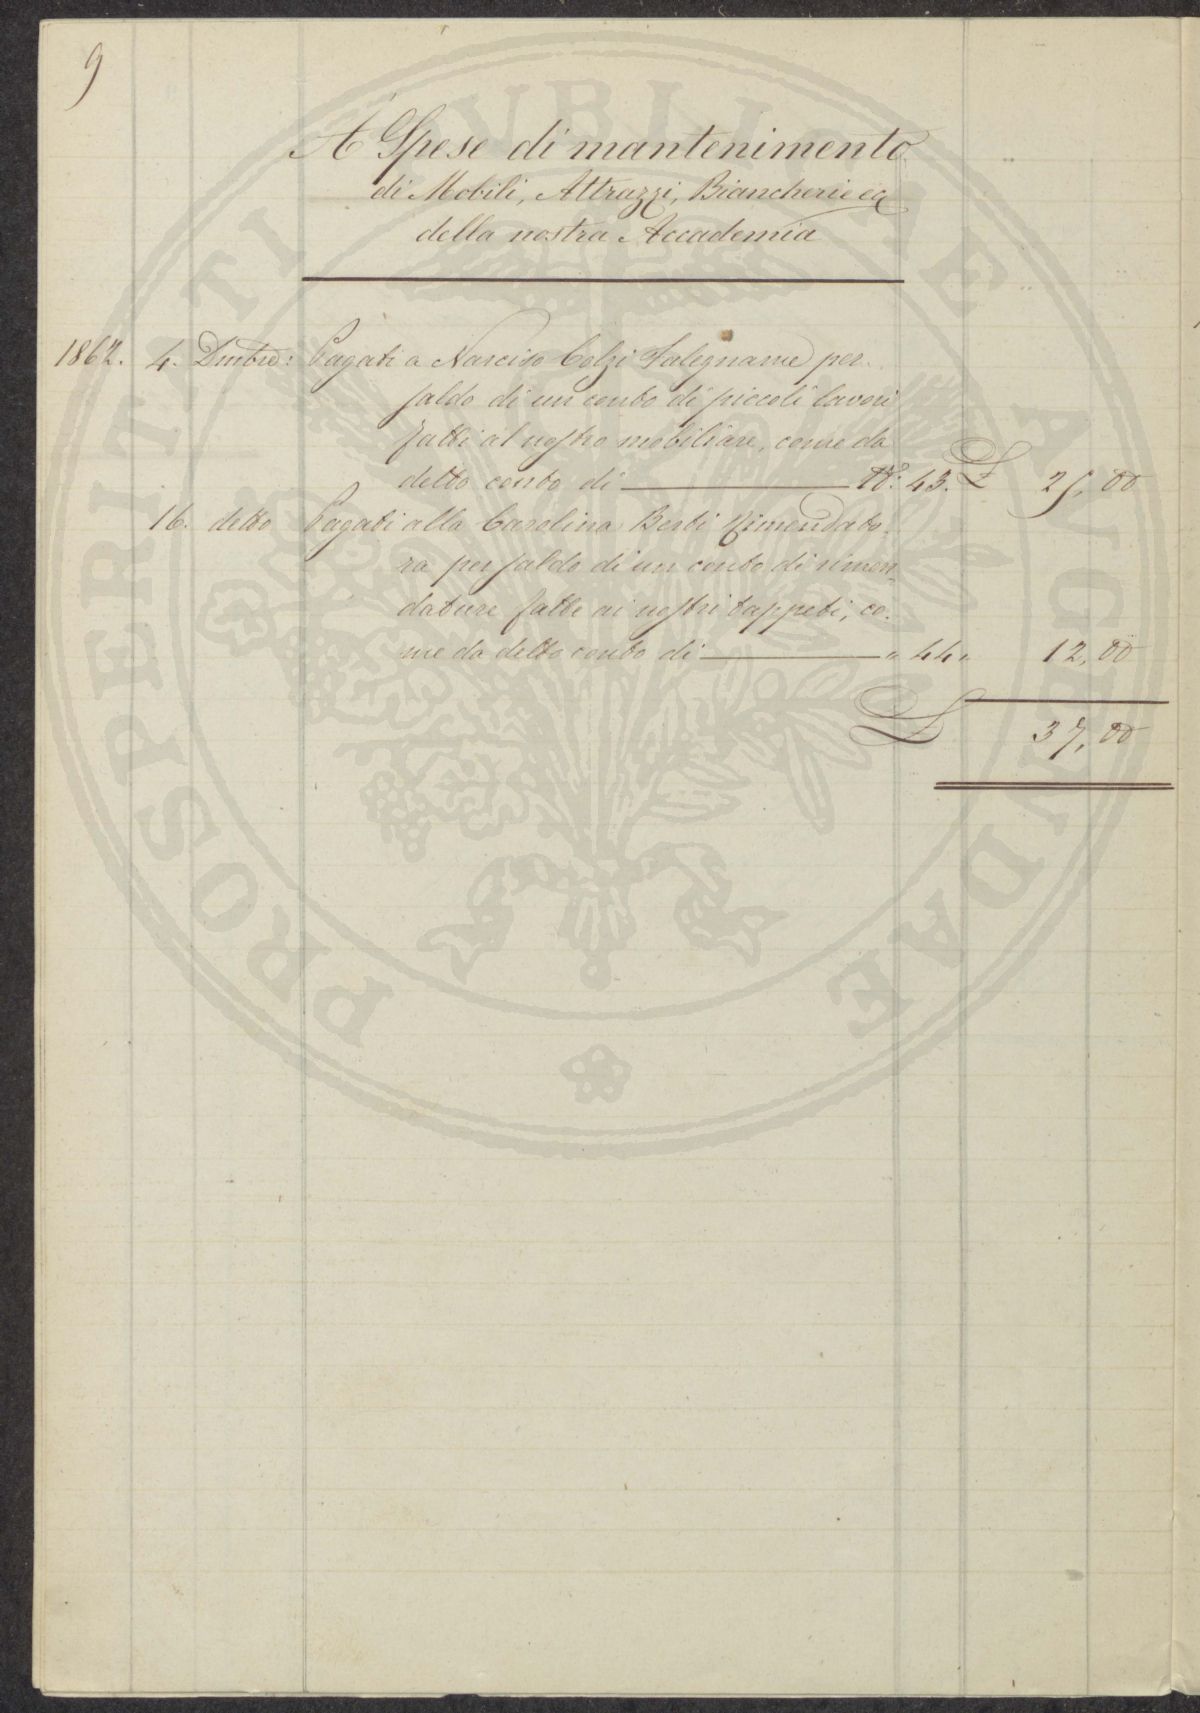 9
A Spese di mantenimento
di Mobili, Attrazzi, Biancherie ec
della nostra Accademia
1862. 4. Dmbre: Pagati a Narciso Colzi Falegname per
saldo di un conto di piccoli lavori
fatti al nostro mobiliare, come da
detto conto di N: 43. £ 25,00
16. detto Pagati alla Carolina Berti Rimendato-
ra per saldo di un conto di rimen-
dature fatte ai nostri tappeti, co-
me da detto conto di " 44 " 12,00
£ 37,00
PROSPERITATI PUBLICAE AUGENDAE